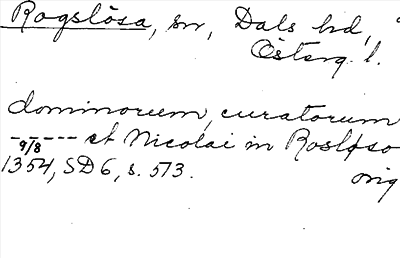 Rogslösa, sn, Dals hd,
Österg. l.
dominorum, curatorum
----- et Nicolai in Rosløso
9/8
1354, SD 6, s. 573.
orig